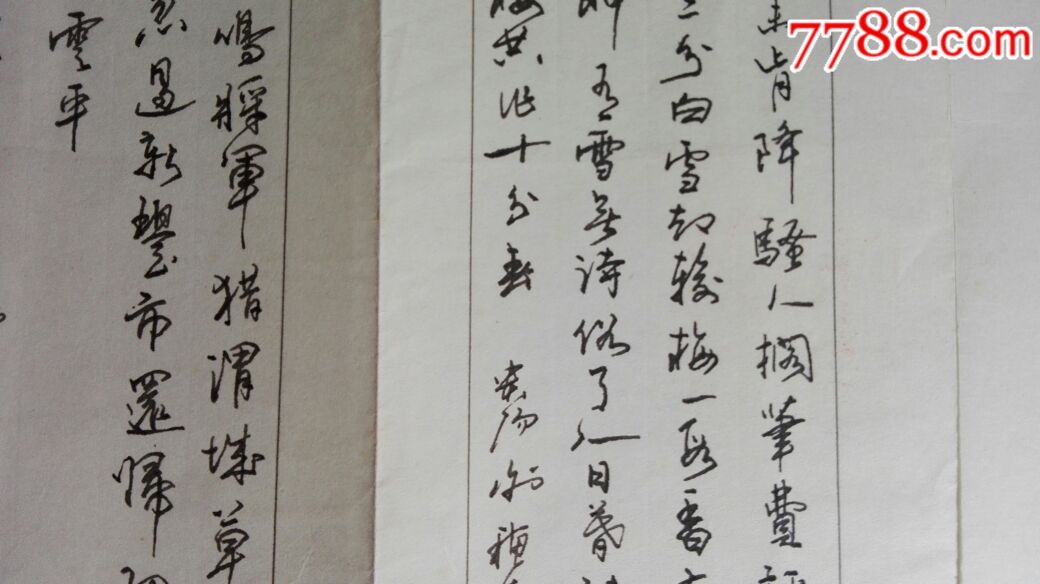 7788.com
未肯降騷人擱筆費評
三分白雪却輸梅一段香
神有雪無詩俗了人日暮詩
梅共作十分春
鳴將軍獵渭城草
忽過新豐市還歸細
雲平